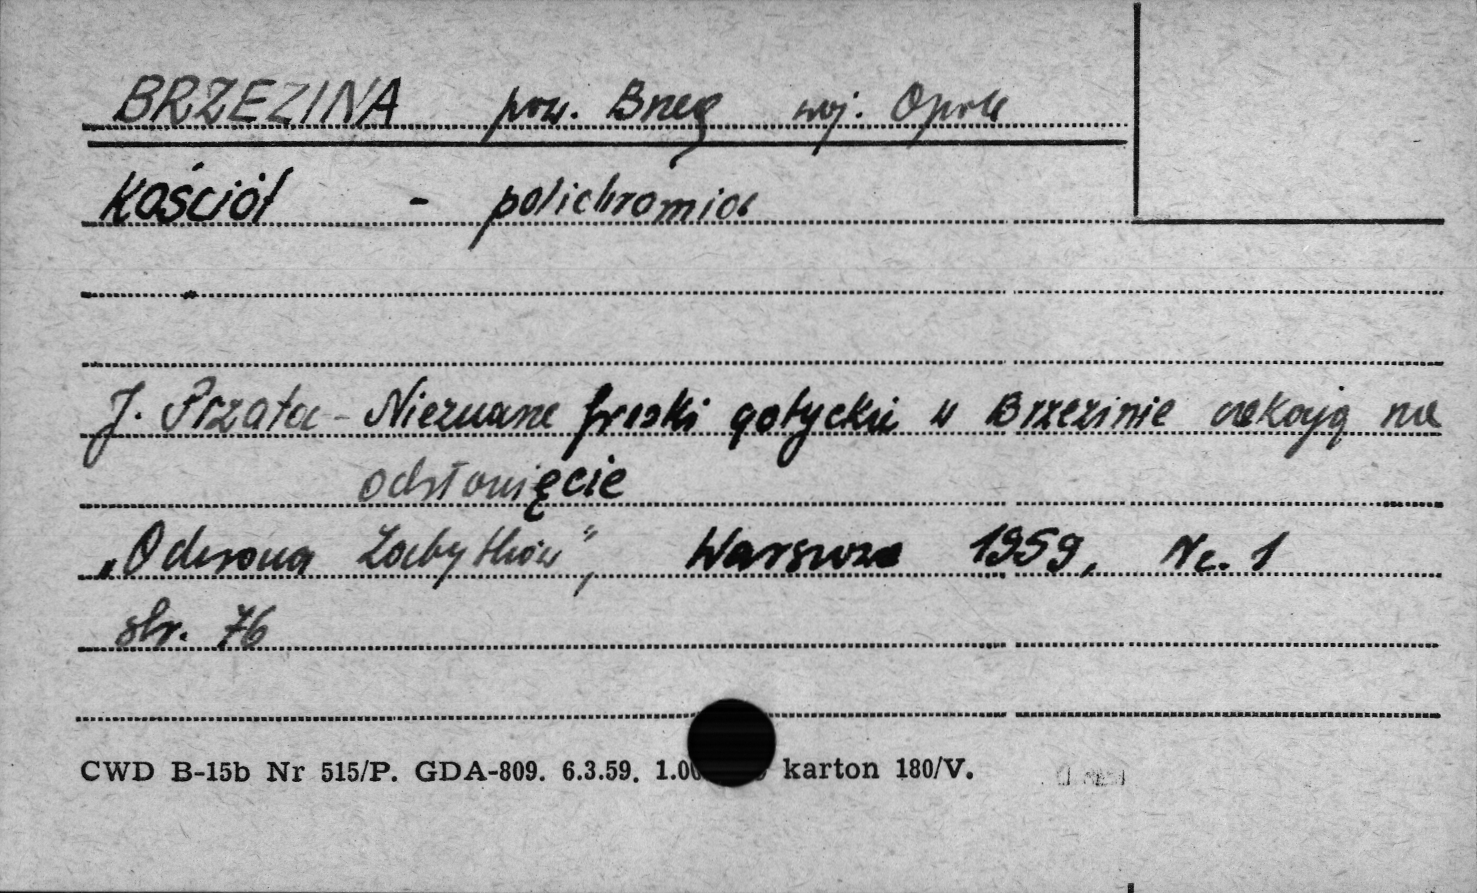 BRZEZINA pow. Brzeg woj. Opole
Kościół - polichromia
J. Przała - Nieznane freski gotyckie w Brzezinie czekają na
odsłonięcie
„Ochrona Zabytków”, Warszawa 1959, Nr. 1
str. 76
CWD B-15b Nr 515/P. GDA-809. 6.3.59. 1.00 karton 180/V.